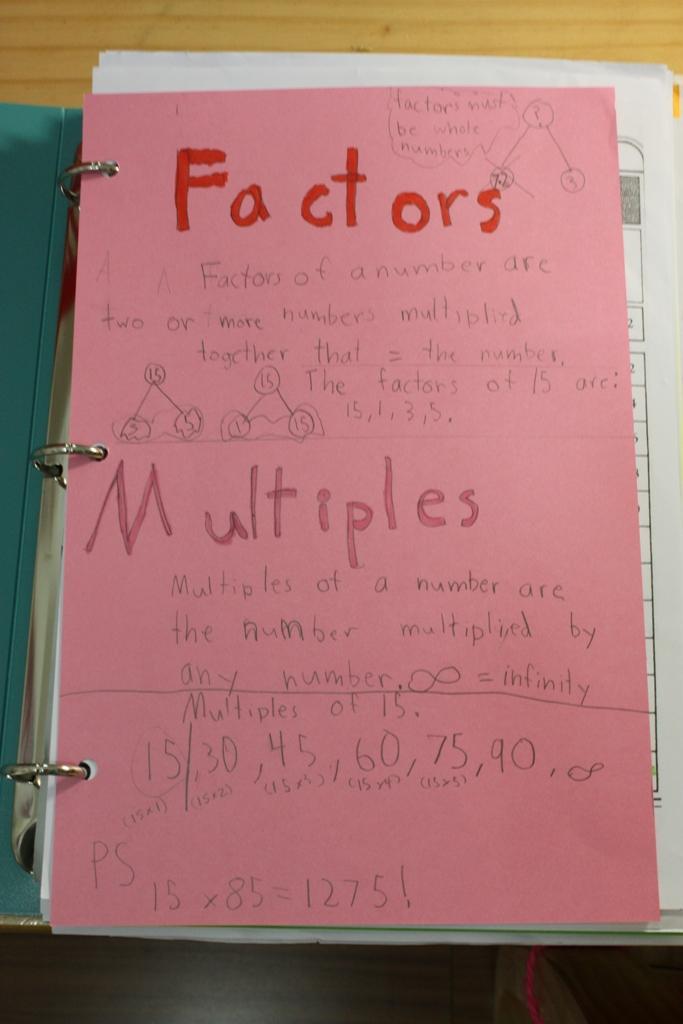 factors must
be whole
numbers
?
7.2 3
Factors
Factors of a number are
two or more numbers multiplied
together that = the number.
15 15 The factors of 15 are:
15, 1, 3, 5.
3 5 1 15
Multiples
Multiples of a number are
the number multiplied by
any number. ∞ = infinity
Multiples of 15.
15, 30, 45, 60, 75, 90, ∞
(15x1) (15x2) (15x3) (15x4) (15x5)
PS
15 x 85 = 1275!